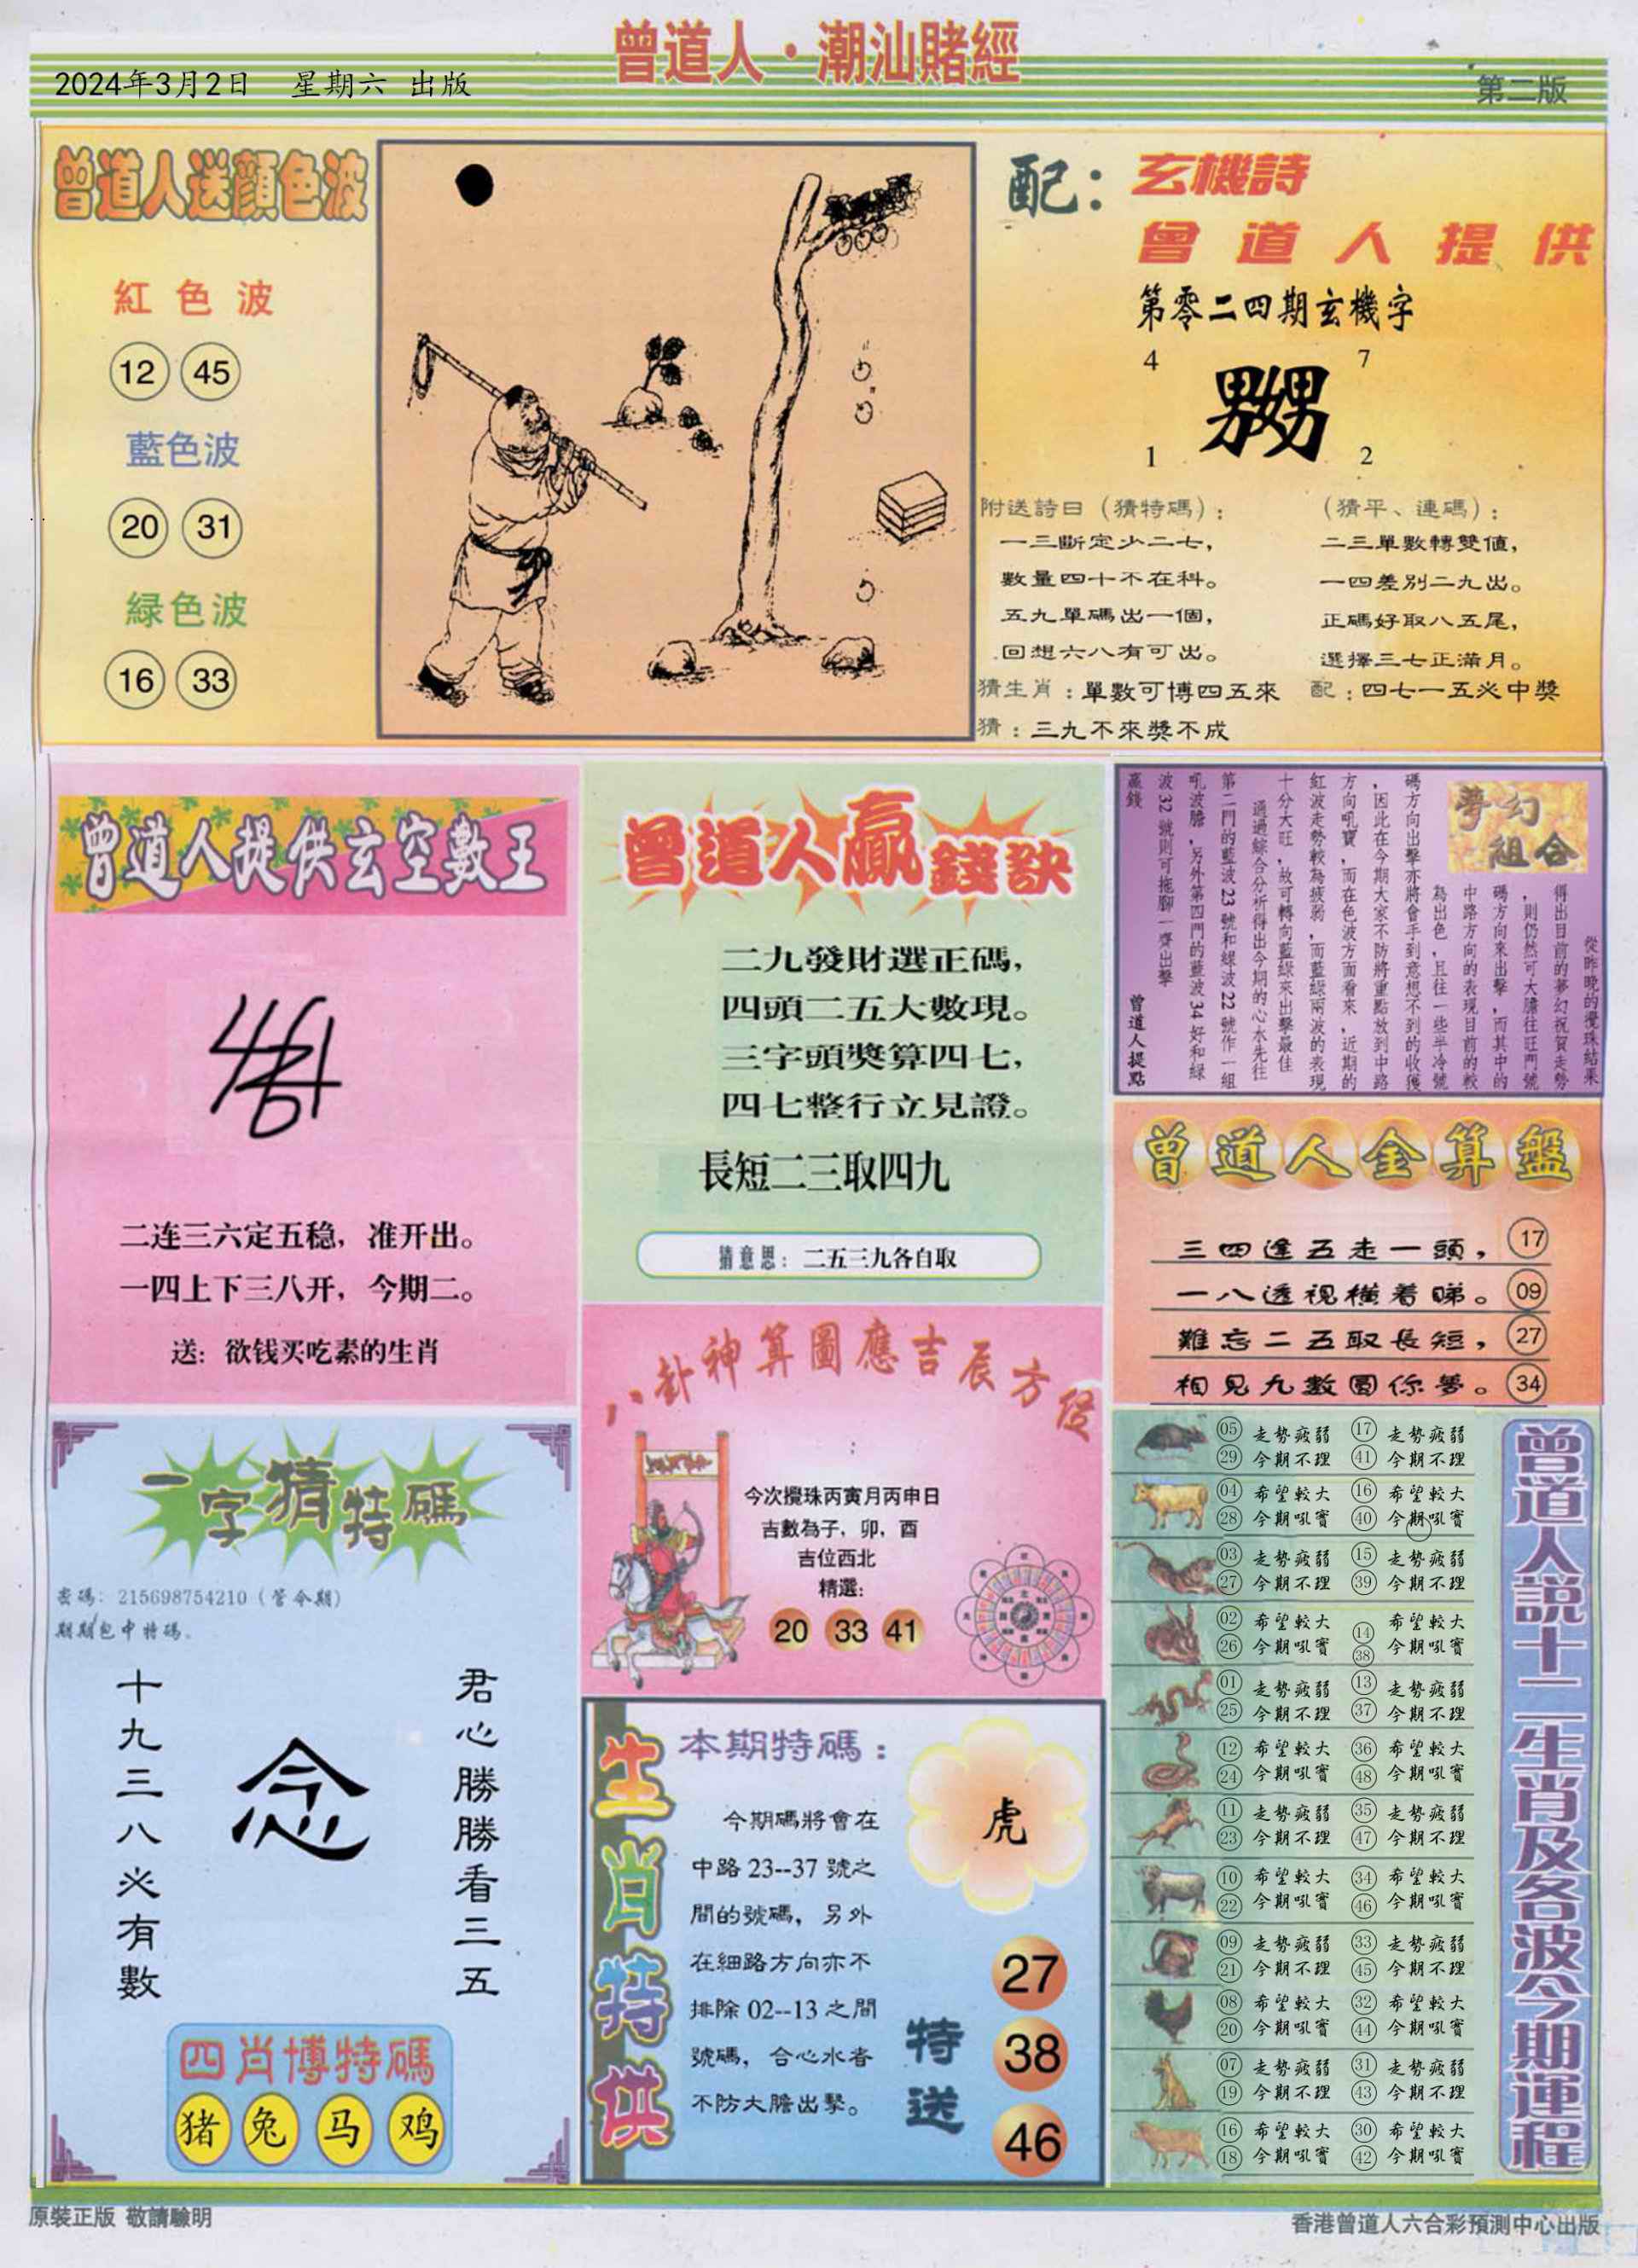 曾道人·潮汕賭經
2024年3月2日 星期六 出版
第二版
曾道人送顔色波
紅色波
12 45
藍色波
20 31
緑色波
16 33
配：
玄機詩
曾道人提供
第零二四期玄機字
4 7
嬲
1 2
附送詩曰（猜特碼）：
一三斷定少二七，
數量四十不在科。
五九單碼出一個，
回想六八有可出。
（猜平、連碼）：
二三單數轉雙值，
一四差别二九出。
正碼好取八五尾，
選擇三七正滿月。
猜生肖：單數可博四五來
配：四七一五必中獎
猜：三九不來獎不成
曾道人提供玄空數王
二连三六定五稳，准开出。
一四上下三八开，今期二。
送：欲钱买吃素的生肖
曾道人贏錢訣
二九發財選正碼，
四頭二五大數現。
三字頭獎算四七，
四七整行立見證。
長短二三取四九
猜意思：二五三九各自取
夢幻組合
從昨晚的攪珠結果
得出目前的夢幻祝賀走勢
，則仍然可大膽往旺門號
碼方向來出擊，而其中的
中路方向的表現目前的較
為出色，且往一些半冷號
碼方向出擊亦將會手到意想不到的收獲
，因此在今期大家不防將重點放到中路
方向吼寶，而在色波方面看來，近期的
紅波走勢較為疲弱，而藍綠兩波的表現
十分大旺，故可轉向藍綠來出擊最佳
通過綜合分析得出今期的心水先往
第二門的藍波23號和綠波22號作一組
吼波膽，另外第四門的藍波34好和綠
波32號則可拖腳一齊出擊
贏錢
曾道人提點
曾道人金算盤
三四逢五走一頭， 17
一八透視橫着睇。 09
難忘二五取長短， 27
相見九數圓你夢。 34
八卦神算圖應吉辰方位
今次攪珠丙寅月丙申日
吉數為子，卯，酉
吉位西北
精選：
20 33 41
一字猜特碼
密碼：215698754210（管今期）
期期包中特碼。
君心勝勝看三五
念
十九三八必有數
四肖博特碼
猪 兔 马 鸡
生肖特供
本期特碼：
今期碼將會在
中路23--37號之
間的號碼，另外
在細路方向亦不
排除02--13之間
號碼，合心水者
不防大膽出擊。
虎
特送
27
38
46
曾道人説十二生肖及各波今期運程
05 走勢疲弱 17 走勢疲弱
29 今期不理 41 今期不理
04 希望較大 16 希望較大
28 今期吼寶 40 今期吼寶
03 走勢疲弱 15 走勢疲弱
27 今期不理 39 今期不理
02 希望較大 14 希望較大
26 今期吼寶 38 今期吼寶
01 走勢疲弱 13 走勢疲弱
25 今期不理 37 今期不理
12 希望較大 36 希望較大
24 今期吼寶 48 今期吼寶
11 走勢疲弱 35 走勢疲弱
23 今期不理 47 今期不理
10 希望較大 34 希望較大
22 今期吼寶 46 今期吼寶
09 走勢疲弱 33 走勢疲弱
21 今期不理 45 今期不理
08 希望較大 32 希望較大
20 今期吼寶 44 今期吼寶
07 走勢疲弱 31 走勢疲弱
19 今期不理 43 今期不理
16 希望較大 30 希望較大
18 今期吼寶 42 今期吼寶
原裝正版 敬請驗明
香港曾道人六合彩預測中心出版